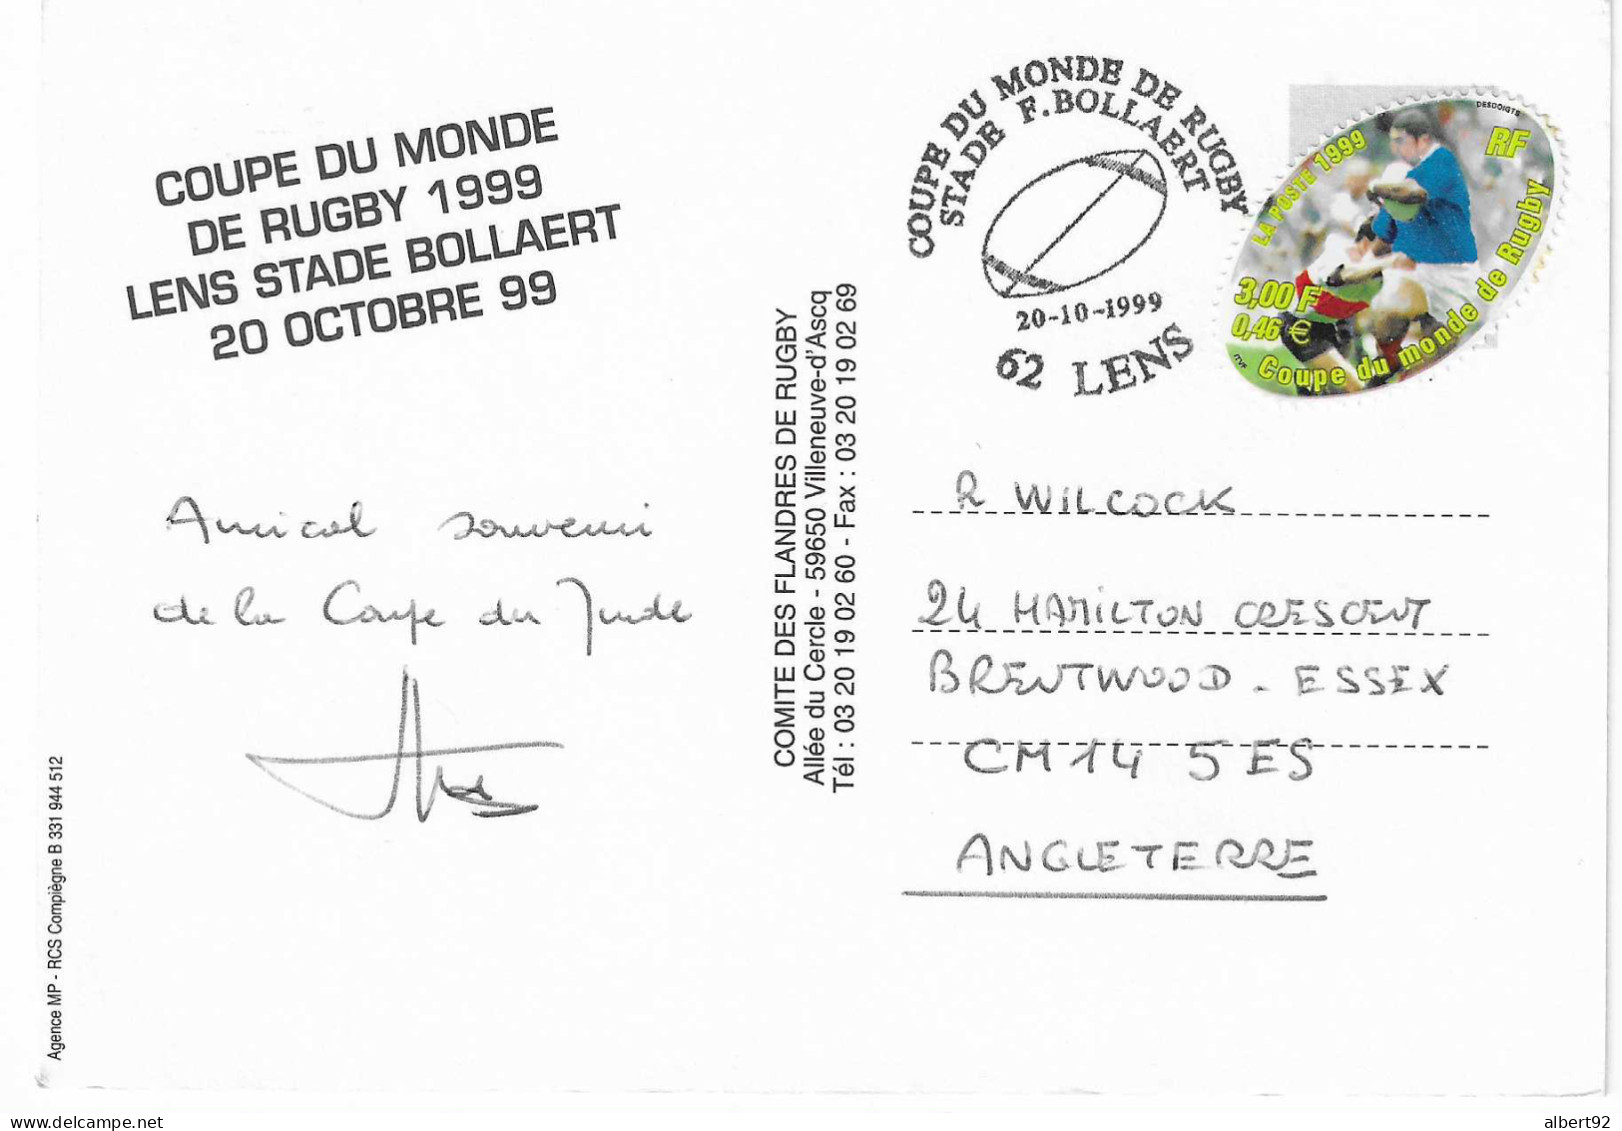 COUPE DU MONDE
DE RUGBY 1999
LENS STADE BOLLAERT
20 OCTOBRE 99
Amical souvenir
de la Coupe du Monde
Agence MP - RCS Compiègne B 331 944 512
COMITE DES FLANDRES DE RUGBY
Allée du Cercle - 59650 Villeneuve-d'Ascq
Tél : 03 20 19 02 60 - Fax : 03 20 19 02 69
COUPE DU MONDE DE RUGBY
STADE F.BOLLAERT
20-10-1999
62 LENS
DESDOIGTS
RF
LA POSTE 1999
3,00 F
0,46 €
ITVF
Coupe du monde de Rugby
R WILCOCK
24 HAMILTON CRESCENT
BRENTWOOD - ESSEX
CM14 5ES
ANGLETERRE
albert92